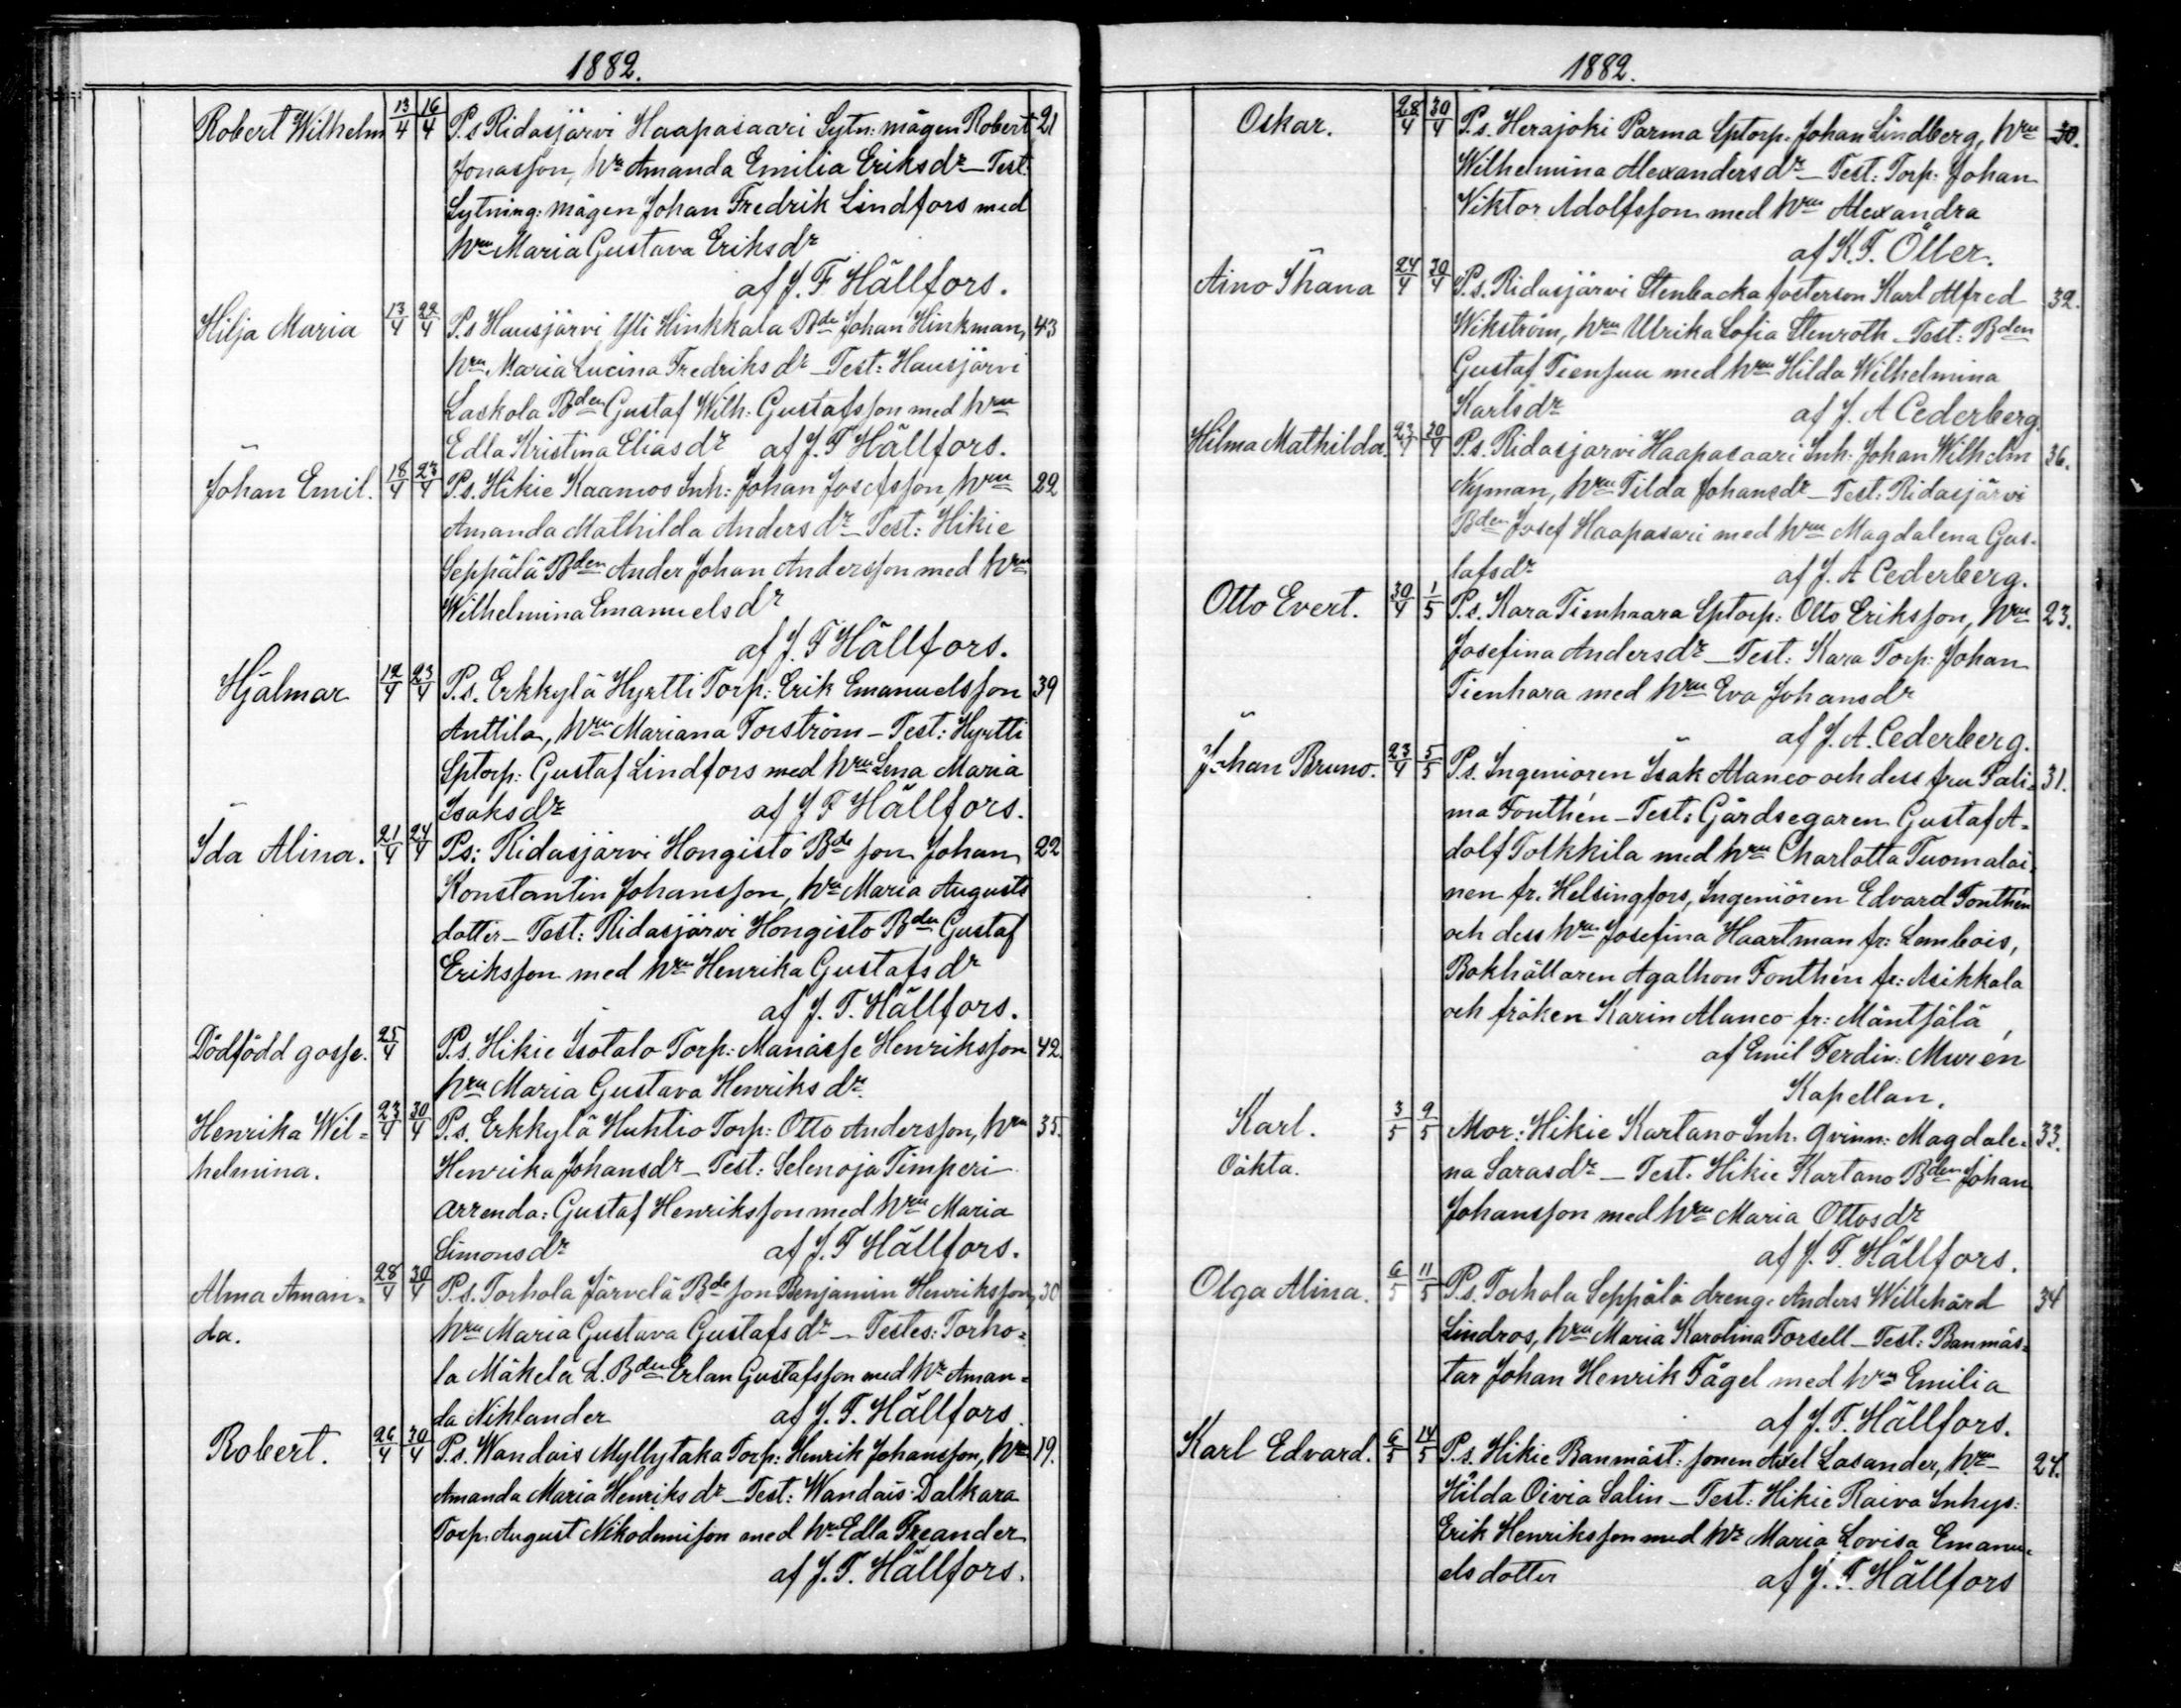 1882.
Robert Wilhelm 13/4 16/4 P.s Ridasjärvi Haapasaari Sytn: mågen Robert 21
Jonasson, hru Amanda Emilia Eriksdr – Test:
Sytning: mågen Johan Fredrik Lindfors med
hru Maria Gustava Eriksdr
af J. F Hällfors.
Hilja Maria 13/4 22/4 P.s Hausjärvi Yli Hinkkala Bde Johan Hinkman, 43
hru Maria Lucina Fredriksdr – Test: Hausjärvi
Laskola Bden Gustaf Wilh: Gustafsson med hru
Edla Kristina Eliasdr af J. F Hällfors.
Johan Emil. 18/4 23/4 P.s. Hikie Kaamos Inh: Johan Josefsson, hru 22
Amanda Mathilda Andersdr – Test: Hikie
Seppälä Bden Ander Johan Andersson med hru
Wilhelmina Emanuelsdr
af J. F Hällfors.
Hjalmar 12/4 23/4 P.s. Erkkylä Hyrtti Torp: Erik Emanuelsson 39
Anttila, hru Mariana Forström – Test: Hyrtti
Sptorp: Gustaf Lindfors med hru Lena Maria
Isaksdr af J F Hällfors.
Ida Alina. 21/4 24/4 P.s: Ridasjärvi Hongisto Bde son Johan 22
Konstantin Johansson, hru Maria Augusts
dotter – Test: Ridasjärvi Hongisto Bden Gustaf
Eriksson med hru Henrika Gustafsdr
af J. F. Hällfors.
Dödfödd gosse. 25/4 P.s. Hikie Isotalo Torp: Manasse Henriksson 42.
hru Maria Gustava Henriksdr.
Henrika Wil= 23/4 30/4 P.s. Erkkylä Huhtio Torp: Otto Andersson, hru 35.
helmina. Henrika Johansdr – Test: Selenoja Timperi
arrenda: Gustaf Henriksson med hru Maria
Simonsdr af J. F Hällfors.
Alma Aman= 28/4 30/4 P.s. Torhola Järvelä Bde son Benjamin Henriksson, 30
da. hru Maria Gustava Gustafsdr – Testes: Torho=
la Mäkelä L. Bden Erlan Gustafsson med hr Aman=
da Niklander af J. F. Hällfors.
Robert. 26/4 30/4 P.s. Wandais Myllytaka Torp: Henrik Johansson, hru 19.
Amanda Maria Henriksdr – Test: Wandais Dalkara
Torp: August Nikodemisson med hr Edla Freander
af J. F. Hällfors.
1882.
Oskar. 28/4 30/4 P.s. Herajoki Parma Sptorp: Johan Lindberg, hru 30.
Wilhelmina Alexandersdr – Test: Torp: Johan
Viktor Adolfsson med hru Alexandra
af K. F. Öller.
Aino Ihana 24/4 30/4 P.s. Ridasjärvi Stenbacka fosterson Karl Alfred 32.
Wikström, hru Ulrika Sofia Stenroth – Test: Bden
Gustaf Tiensuu med hru Hilda Wilhelmina
Karlsdr af J. A Cederberg.
Hilma Mathilda. 23/4 30/4 P.s. Ridasjarvi Haapasaari Inh: Johan Wilhelm 36.
Nyman, hru Tilda Johansdr – Test: Ridasjärvi
Bden Josef Haapasari med hru Magdalena Gus=
tafsdr af J. A Cederberg.
Otto Evert. 30/4 1/5 P.s. Kara Tienhaara Sptorp: Otto Eriksson, hru 23.
Josefina Andersdr – Test: Kara Torp: Johan
Tienhara med hru Eva Johansdr
af J. A. Cederberg.
Johan Bruno. 23/4 5/5 P.s. Ingeniören Isak Alanco och dess fru Sali= 31.
ma Fonthén – Test: Gårdsegaren Gustaf A=
dolf Tolkkila med hru Charlotta Tuomalai=
nen fr. Helsingfors, Ingeniören Edvard Fonthén
och dess hru Josefina Haartman fr: Lembois,
Bokhållaren Agathon Fonthén fr: Asikkala
och fröken Karin Alanco fr: Mäntsälä,
af Emil Ferdin: Murén
Kapellan.
Karl. 3/5 9/5 Mor: Hikie Kartano Inh. qvinn: Magdale= 33.
Oäkta. na Sarasdr – Test: Hikie Kartano Bden Johan
Johansson med hru Maria Ottosdr
af J. F. Hällfors.
Olga Alina. 6/5 11/5 P.s. Torhola Seppälä dreng. Anders Willehard 34
Lindros, hru Maria Karolina Forsell – Test: Banmäs=
tar Johan Henrik Fågel med hru Emilia
af J. F. Hällfors.
Karl Edvard. 6/5 14/5 P.s. Hikie Banmäst: sonen Axel Lasander, hru 24.
Hilda Oivia Salin – Test: Hikie Raiva Inhys:
Erik Henriksson med hr Maria Lovisa Emanu=
elsdotter af J. F. Hällfors